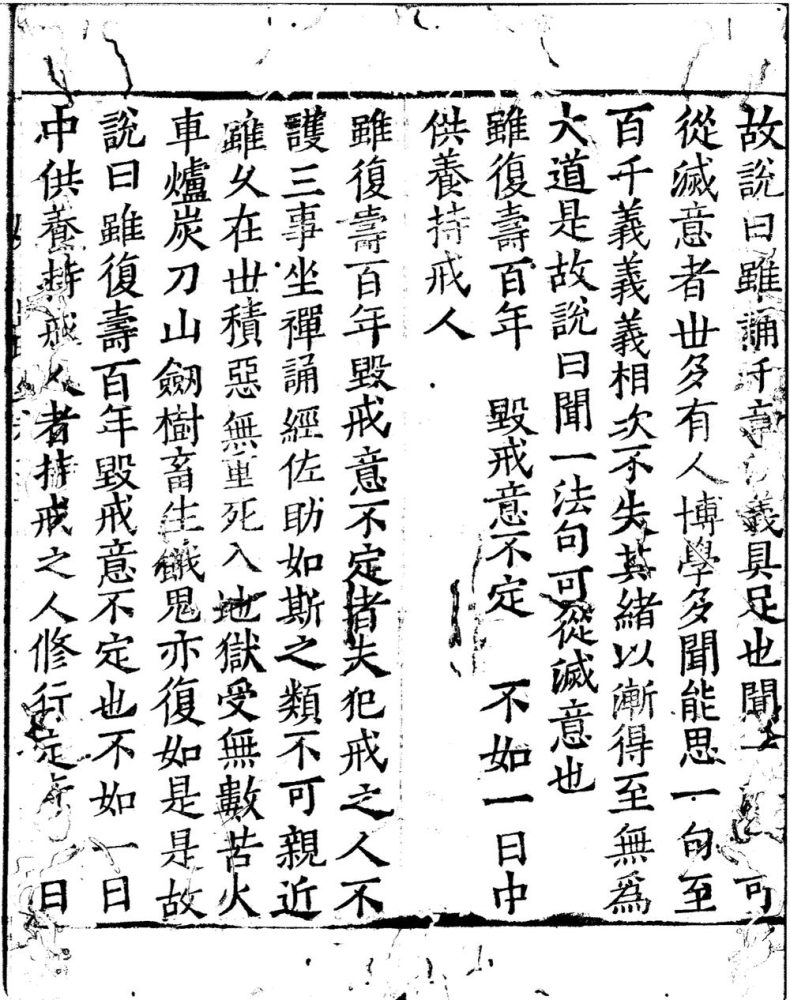 故說曰雖誦千章 義具足也聞一 可
從滅意者世多有人博學多聞能思一句至
百千義義義相次不失其緒以漸得至無爲
大道是故說曰聞一法句可從滅意也
雖復壽百年　毀戒意不定　不如一日中
供養持戒人
雖復壽百年毀戒意不定者夫犯戒之人不
護三事坐禪誦經佐助如斯之類不可親近
雖久在世積惡無量死入地獄受無數苦火
車爐炭刀山劒樹畜生餓鬼亦復如是是故
說曰雖復壽百年毀戒意不定也不如一日
中供養持戒人者持戒之人修行定 一日